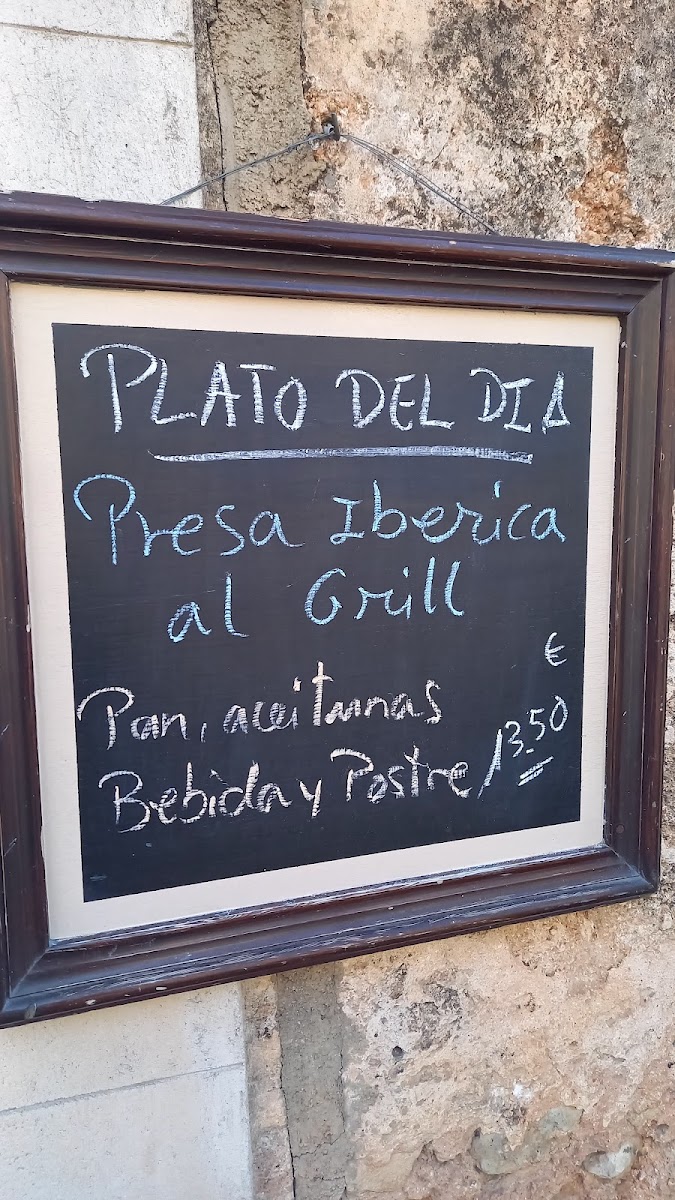 PLATO DEL DIA
Presa Iberica
al Grill
€
Pan, aceitunas
Bebida y Postre 13.50